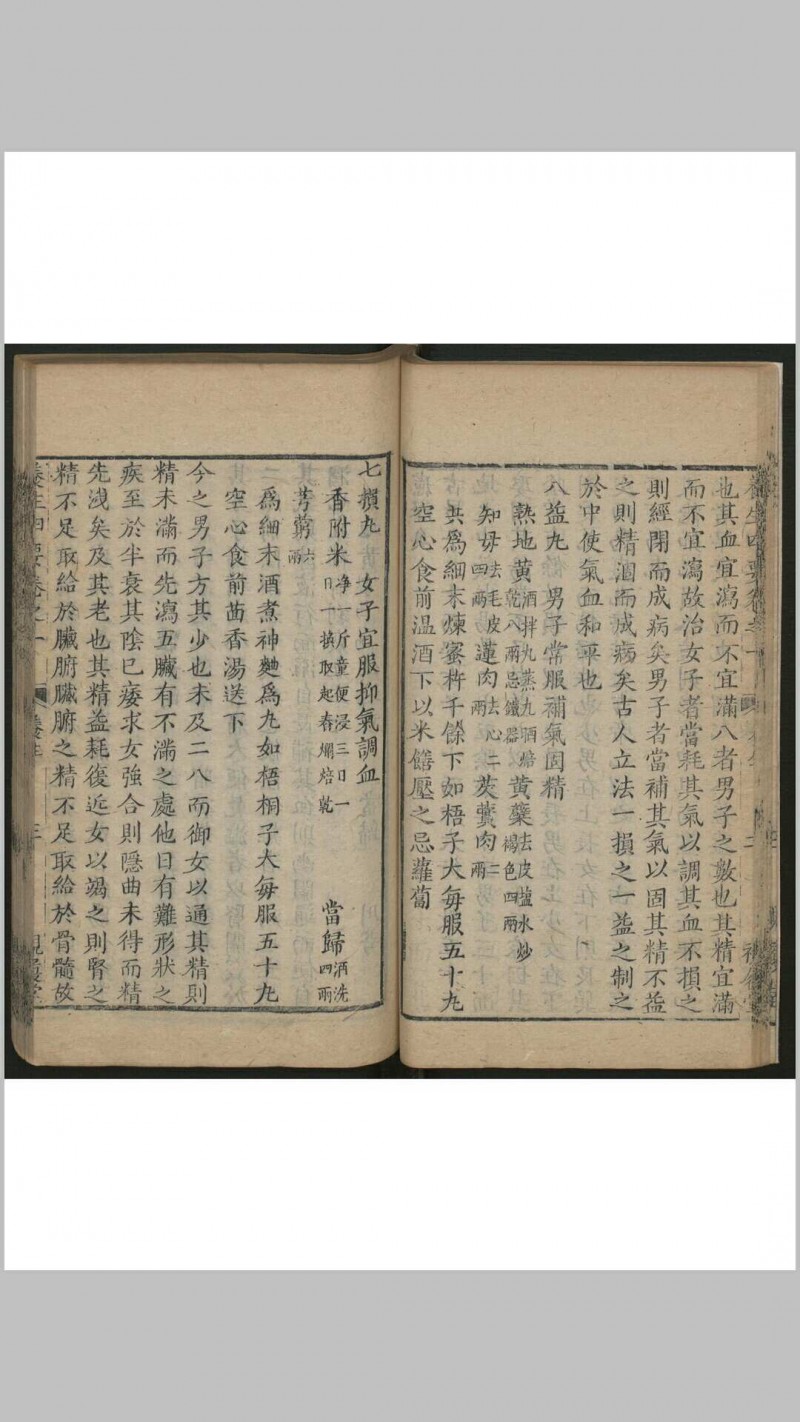 也其血宜瀉而不宜滿八者男子之數也其精宜滿
而不宜瀉故治女子者當耗其氣以調其血不損之
則經閉而成病矣男子者當補其氣以固其精不益
之則精涸而成病矣古人立法一損之一益之制之
於中使氣血和平也
八益丸 男子常服補氣固精
熟地黃 酒拌九蒸九晒焙乾八兩忌鐵器 黃蘗 去皮鹽水炒褐色四兩
知母 去毛皮四兩 蓮肉 去心二兩 芡實肉 二兩
共爲細末煉蜜杵千餘下如梧子大每服五十丸
空心食前温酒下以米饍壓之忌蘿蔔
七損丸 女子宜服抑氣調血
香附米 净一斤童便浸三日一日一換取起舂爛焙乾 當歸 酒洗四兩
芎藭 六兩
爲細末酒煮神麯爲丸如梧桐子大每服五十丸
空心食前茴香湯送下
今之男子方其少也未及二八而御女以通其精則
精未滿而先瀉五臟有不滿之處他日有難形狀之
疾至於半衰其陰已痿求女強合則隱曲未得而精
先洩矣及其老也其精益耗復近女以竭之則腎之
精不足取給於臟腑臟腑之精不足取給於骨髓故
養生四要卷之一 養生 三